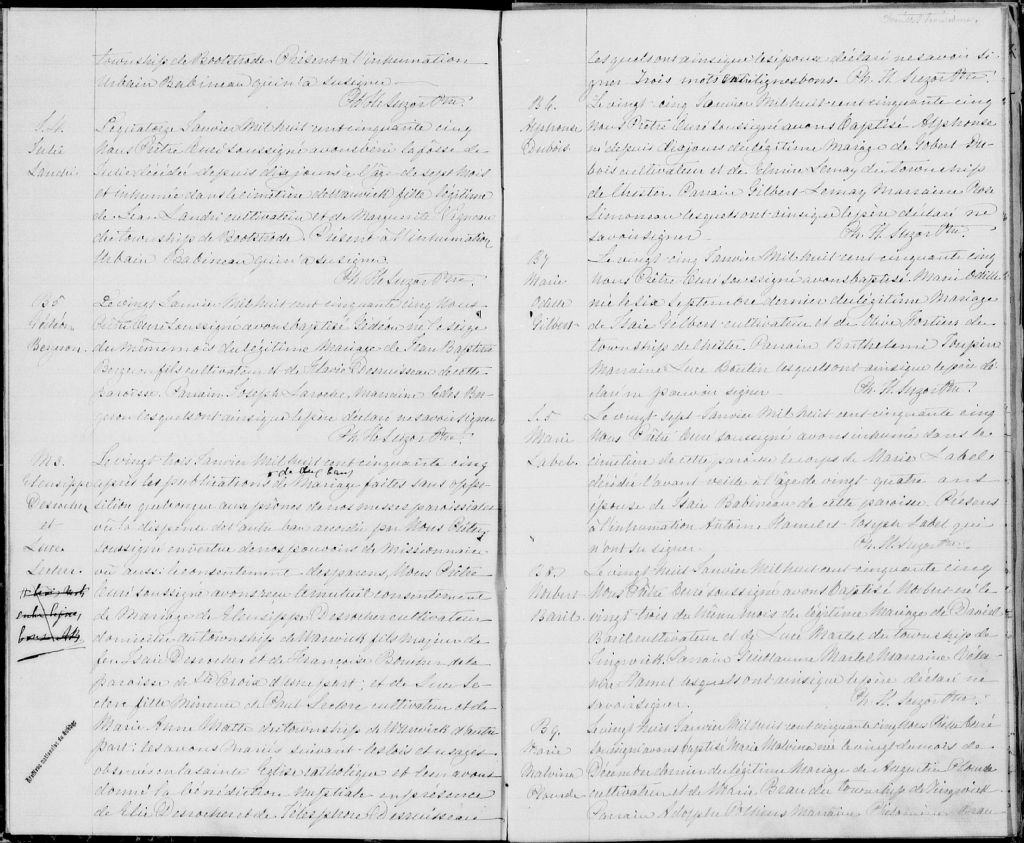 township de Bootstrode. Présent à l'inhumation
Urbain Babineau qui n'a su signer
Ph. H. Suzor Ptre.
S.4.
Julie
Landri.
Le quatorze Janvier Mil huit cent cinquante cinq
Nous Prêtre Curé soussigné avons béni la fosse de
Julie décédée depuis dix jours à l'âge de sept mois
et inhumée dans le cimetière de Warwick fille légitime
de Léa Landri cultivateur et de Marguerite Vigneau
du township de Bootstrode. Présent à l'inhumation
Urbain Babineau qui n'a su signer
Ph. H. Suzor Ptre.
B5
Gédéon
Bergeron.
Le vingt Janvier Mil huit cent cinquante cinq Nous
Prêtre Curé soussigné avons baptisé Gédéon né le seize
du même mois du légitime Mariage de Jean Baptiste
Bergeron fils cultivateur et de Flavie Desruisseau de cette
paroisse. Parrain Joseph Laroche, Marraine Ber-
geron lesquels ont ainsi que le père déclaré ne savoir signer
Ph. H. Suzor Ptre.
M3.
Eleusippe
Desrocher
et
Luce
Leclerc.
Le vingt trois Janvier Mil huit cent cinquante cinq
après les publications de Mariage faites sans oppo-
sition quelconque aux prônes de nos messes paroissiales
vu la dispense de l'autre ban accordée par Nous Prêtre
soussigné en vertue de nos pouvoirs de Missionnaire
vu aussi le consentement des parens, Nous Prêtre
Curé soussigné avons reçu le mutuel consentement
de Mariage de Eleusippe Desrocher cultivateur
domicilié du township de Warwick fils majeur de
feu Isaie Desrocher et de Françoise Boucher de la
paroisse de Ste Croix d'une part; et de Luce Le-
clerc fille Mineure de Paul Leclerc cultivateur et de
Marie Anne Matte du township de Warwick d'autre
part: les avons Mariés suivant les lois et usages
observés en la sainte Eglise catholique et leur avons
donné la bénédiction nuptiale en présence
de Elie Desrocher et de Télesphore Desruisseau
Archives nationales du Québec
Feuillet troisième.
lesquels ont ainsi que les époux déclaré ne savoir si-
gner. Trois mots entrelignes bons. Ph. H. Suzor Ptre.
B6.
Alphonse
Dubois.
Le vingt-cinq Janvier Mil huit cent cinquante cinq
Nous Prêtre Curé soussigné avons baptisé Alphonse
né depuis dix jours du légitime Mariage de Gobert Du-
bois cultivateur et de Elmire Lemay du township
de Chester. Parrain Gilbert Lemay Marraine Rose
Simoneau lesquels ont ainsi que le père déclaré ne
savoir signer. Ph. H. Suzor Ptre.
B7
Marie
Odille
Gilbert
Le vingt cinq Janvier Mil huit cent cinquante cinq
Nous Prêtre Curé soussigné avons baptisé Marie Odille
née le six Septembre dernier du légitime Mariage
de Isaie Gilbert cultivateur et de Olive Fortier du
township de Chester. Parrain Barthelemi Toupin
Marraine Luce Boutin lesquels ont ainsi que le père dé-
claré ne pouvoir signer. Ph. H. Suzor Ptre.
S.5
Marie
Label.
Le vingt sept Janvier Mil huit cent cinquante cinq
Nous Prêtre Curé soussigné avons inhumé dans le
cimetière de cette paroisse le corps de Marie Label
décédée l'avant veille à l'âge de vingt quatre ans
épouse de Isaie Babineau de cette paroisse. Présens
à l'inhumation Antoine Hamel et Joseph Label qui
n'ont su signer. Ph. H. Suzor Ptre.
B8.
Norbert
Baril.
Le vingt huit Janvier Mil huit cent cinquante cinq
Nous Prêtre Curé soussigné avons baptisé Norbert né le
vingt-trois du même mois du légitime Mariage de David
Baril cultivateur et de Luce Martel du township de
Tingwick. Parrain Guillaume Martel Marraine
Hamel lesquels ont ainsi que le père déclaré ne
savoir signer. Ph. H. Suzor Ptre.
B9.
Marie
Malvina
Plourde
Le vingt huit Janvier Mil huit cent cinquante cinq Nous Prêtre Curé
soussigné avons baptisé Marie Malvina née le vingt du mois de
Décembre dernier du légitime Mariage de Augustin Plourde
cultivateur et de Marie Beau du township de Tingwick
Parrain Adolphe Marraine Philomène